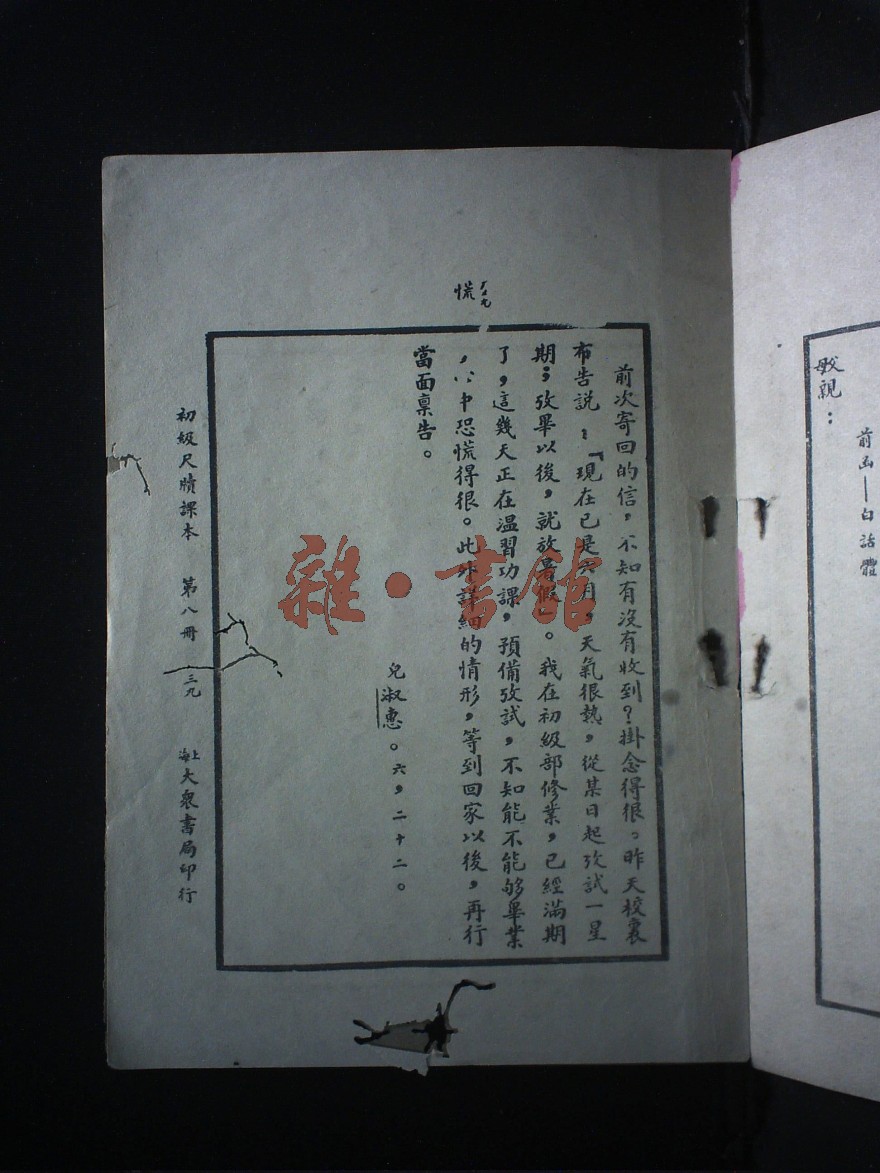 前函—白話體
親：
慌
ㄏㄨㄤ
前次寄回的信，不知有沒有收到？掛念得很。昨天校裏
布告説：『現在已是六月，天氣很熱，從某日起攷試一星
期；攷畢以後，就放暑假』。我在初級部修業，已經滿期
了，這幾天正在温習功課，預備攷試，不知能不能够畢業
，心中恐慌得很。此外詳細的情形，等到回家以後，再行
當面禀告。
兒淑惠。六，二十二。
初級尺牘課本 第八冊 三九 上海大衆書局印行
雜·書館